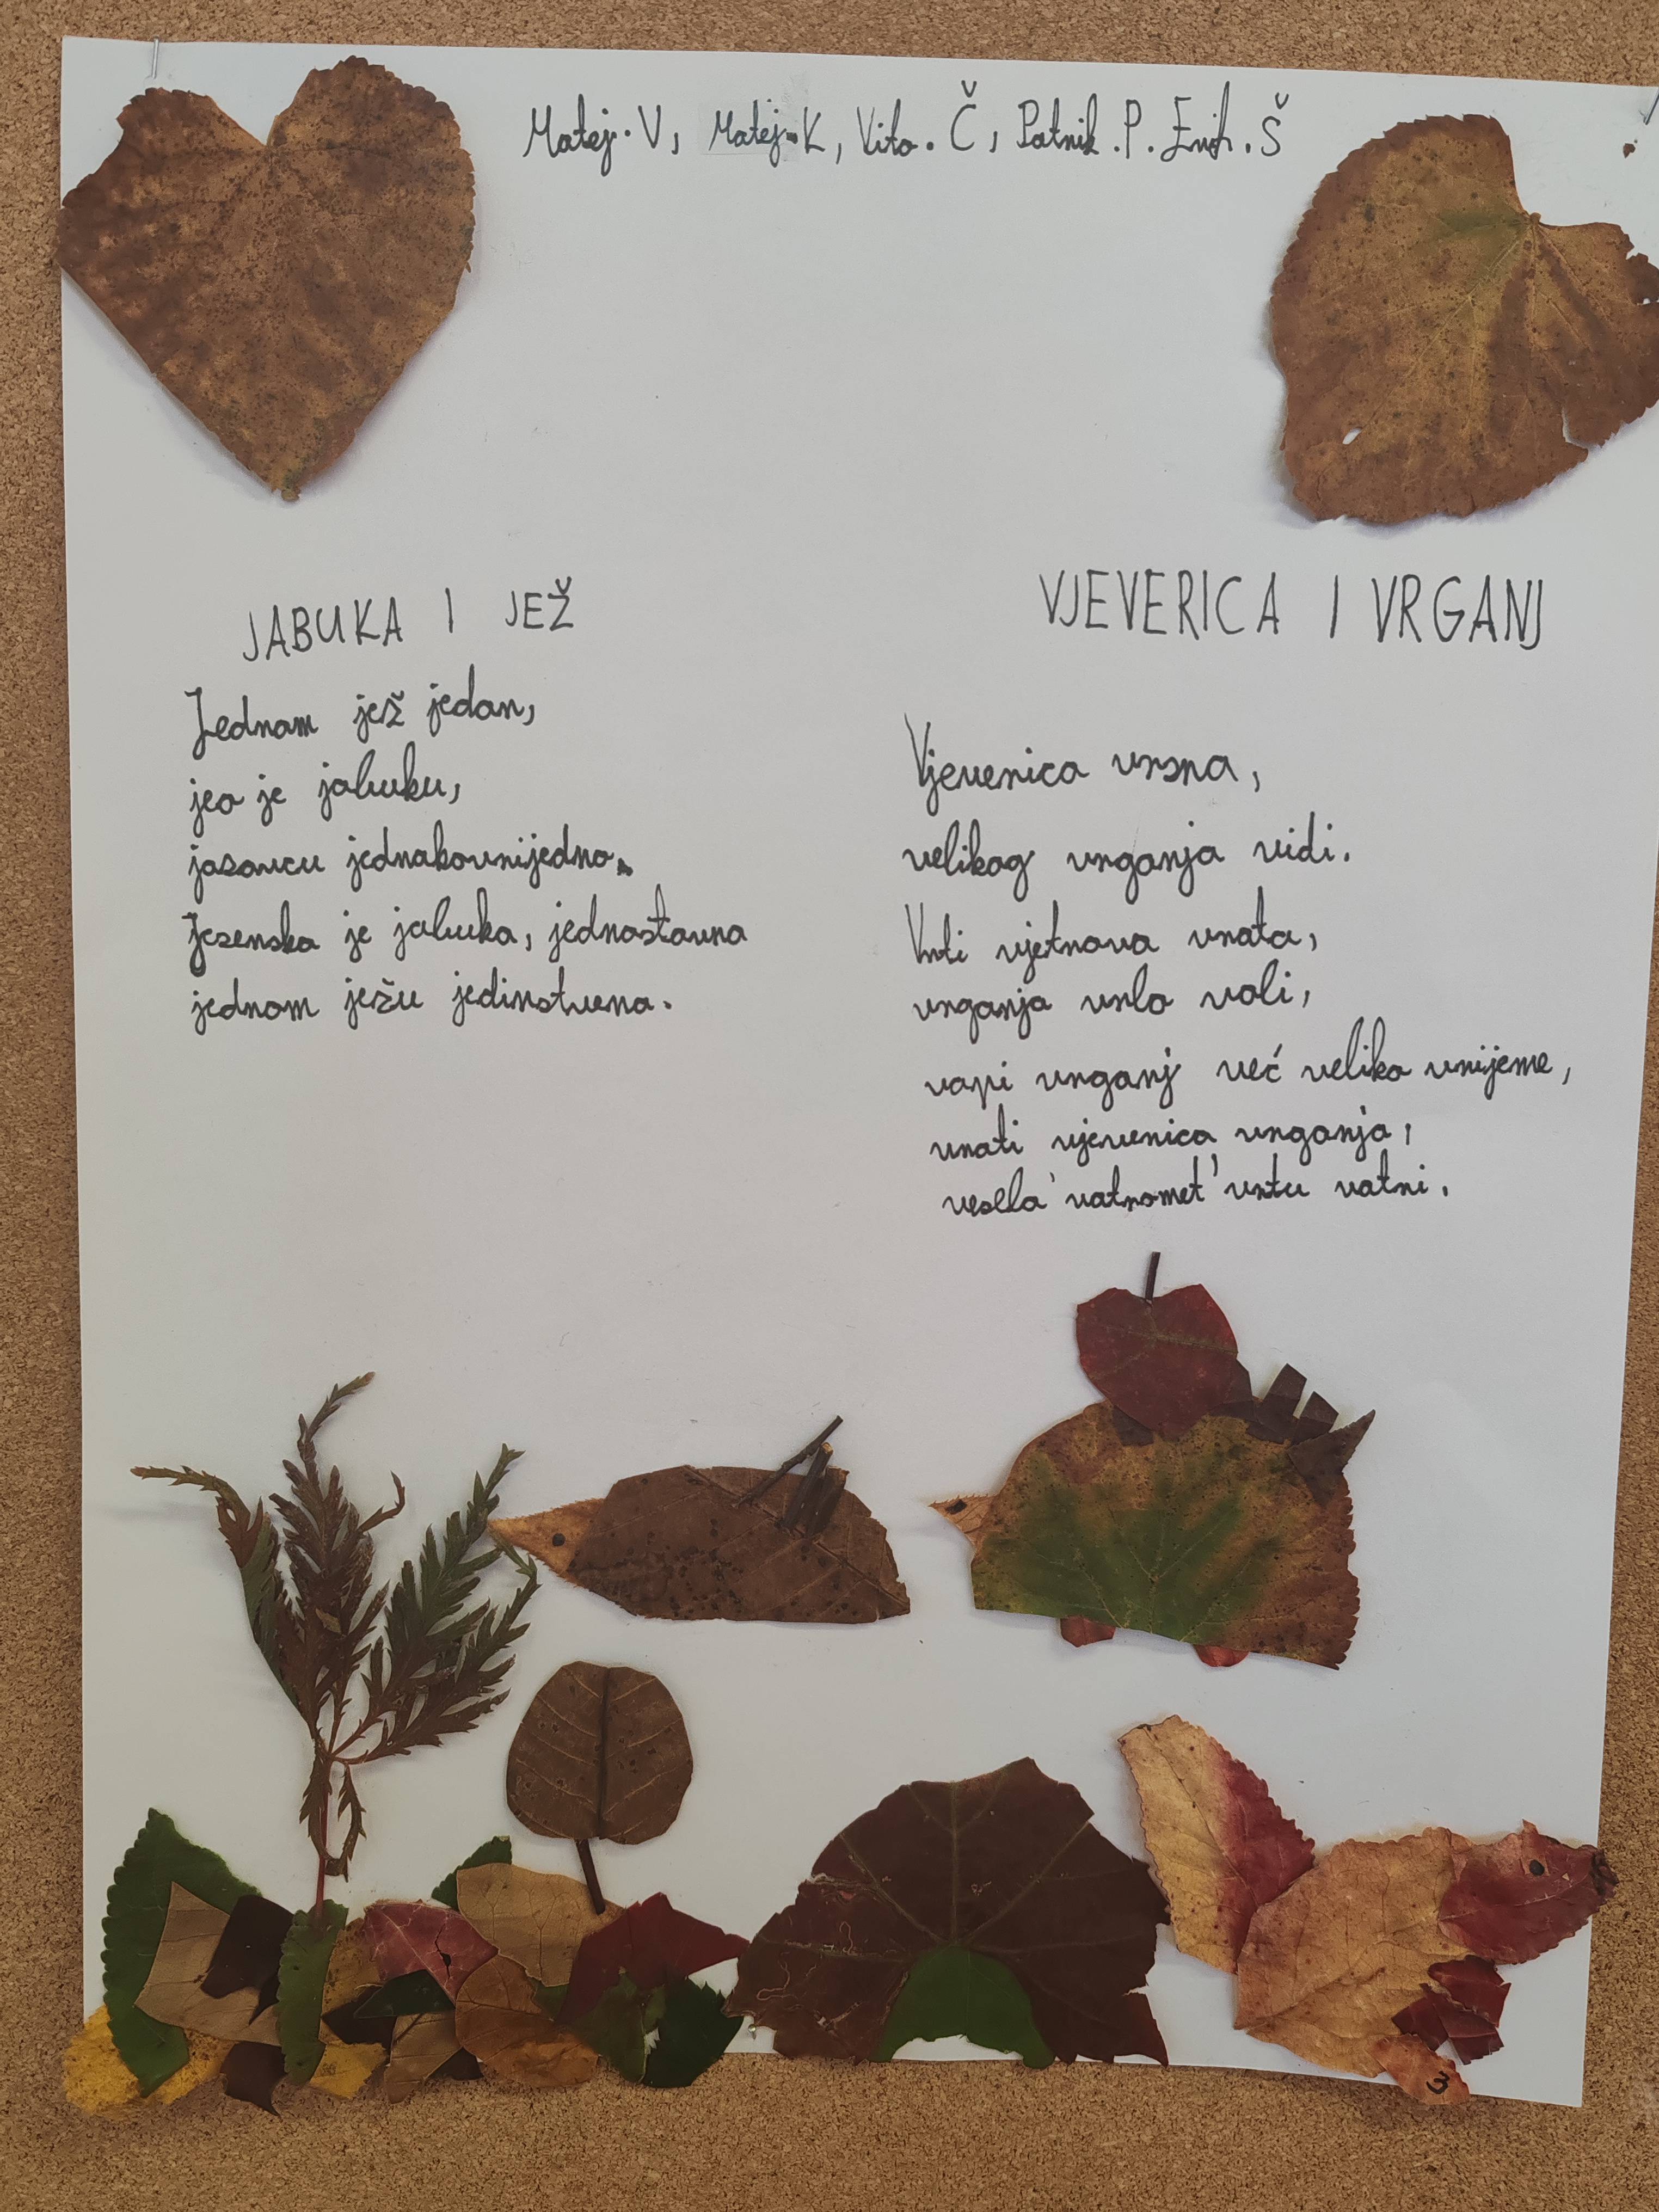 Matej. V, Matej. K, Vito. Č, Patrik. P. Š
JABUKA I JEŽ
Jednom jež jedan,
jeo je jabuku,
jazavcu jednakovrijedno.
Jesenska je jabuka, jednostavna
jednom ježu jedinstvena.
VJEVERICA I VRGANJ
Vjeverica vrsna,
velikog vrganja vidi.
Vrti vjetrova vrata,
vrganja vrlo voli,
vapi vrganj već veliko vrijeme,
vrati vjeverica vrganja,
vesela 'vatromet' vrtu vatri.